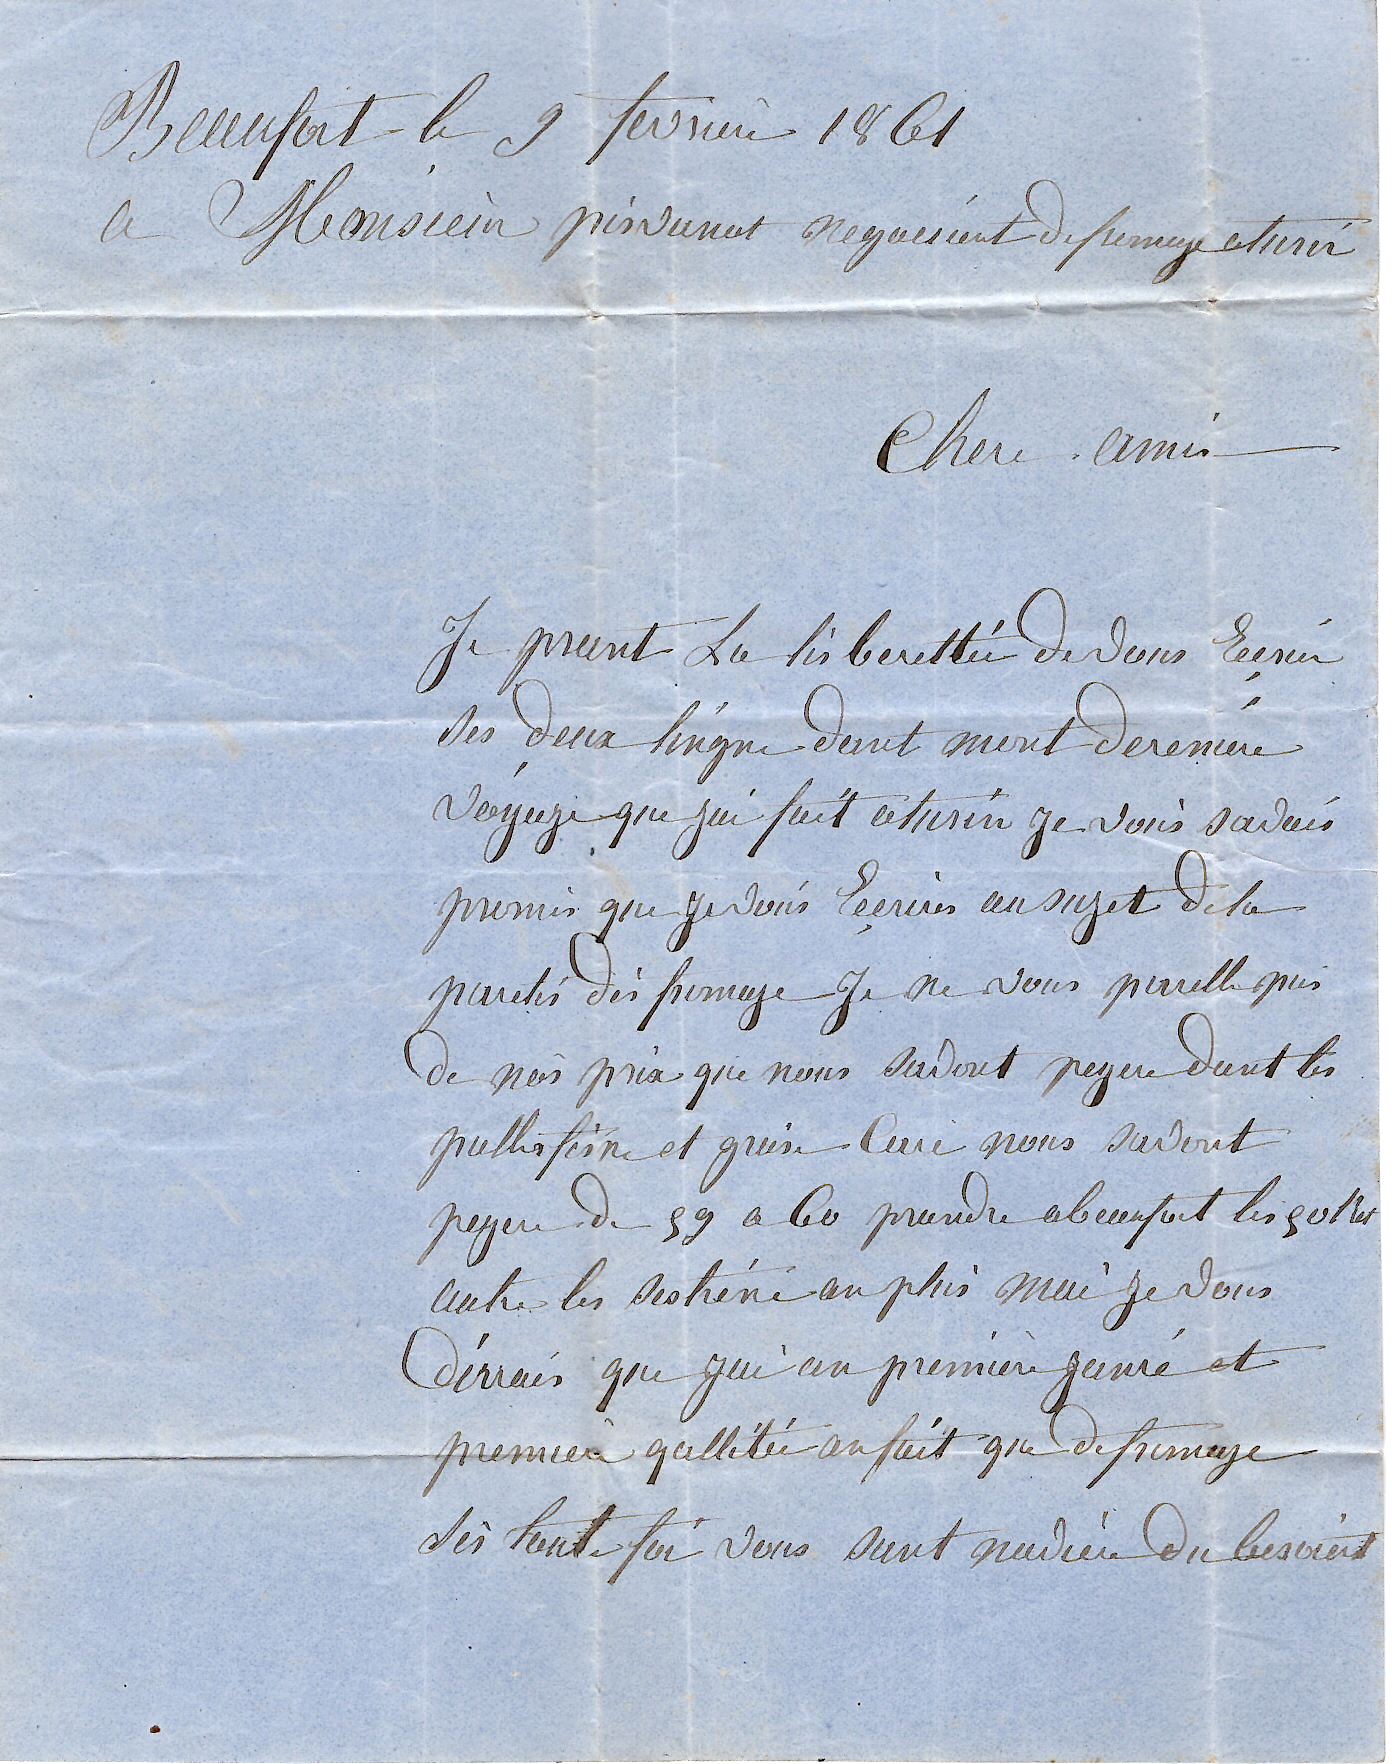 Beaufort le 9 fevrieri 1861
a Monsieur pisvanat negaciant de fromage a turin
Chere amis
Je prant La lis berettée de vous Eecrier
ses deux lingne dant mont deremiere
voyage que jai fait a turin je vous savais
promis que je vous Eecrires au sujet de la
partis dés fromage Je ne vous parelle pas
de nos prix que nous savont peyere dant les
palles fine et graise Care nous savont
peyere de 59 a 60 prandre a beaufort les 50 k
autre les sestréne au plus mai je vous
dirrais que jai au premiere janré et
premiere qallitée au fait que de fromage
sis toute foi vous sant naviere du besoient